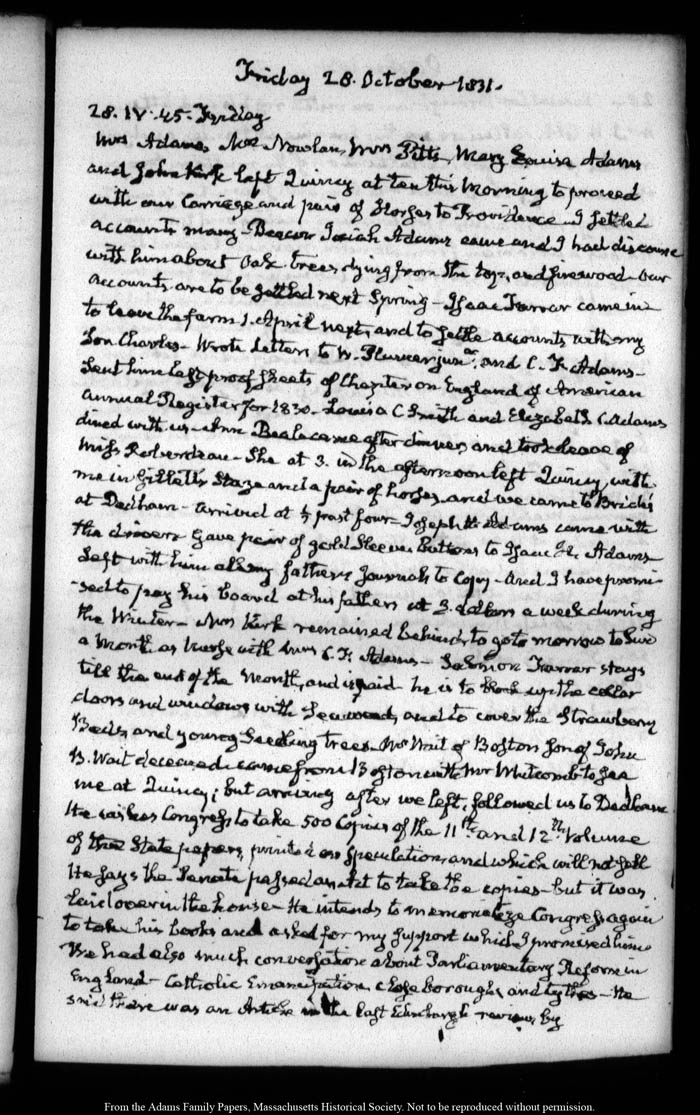 Friday 28. October 1831.
28. IV. 45. Friday
Mrs Adams, Mrs Nowlan, Mrs Pitts, Mary Louisa Adams
and John Kirk left Quincy at ten this Morning to proceed
with our Carriage and pair of Horses to Providence. I settled
accounts many - Deacon Josiah Adams came and I had discourse
with him about Oak trees, dying from the top, and firewood - Our
accounts are to be settled next Spring - Isaac Farrar came in
to leave the farm 1. April next, and to settle accounts with my
Son Charles - Wrote Letters to W. Plumer junr. and C. F. Adams -
Sent him last proof sheets of Chapter on England of American
Annual Register for 1830 - Louisa C Smith and Elizabeth C Adams
dined with us - Ann Beale came after dinner, and took leave of
Miss Roberdeau - She at 3. in the afternoon left Quincy, with
me in Gillett's Stage and a pair of horses, and we came to Bride's
at Dedham - arrived at ½ past four - Joseph H. Adams came with
the driver. Gave pair of gold Sleeve Buttons to Isaac H. Adams
Left with him all my father's Journals to Copy - And I have promi-
-sed to pay his board at his father's at 3. dollars a week during
the Winter - Mrs Kirk remained behind, to go to morrow to live
a Month as Nurse with Mrs C. F. Adams - Solomon Farrar stays
till the end of the Month, and is paid - he is to block up the cellar
doors and windows with Seaweed, and to cover the Strawberry
Beds, and young Seedling trees - Mr Wait of Boston son of John
B. Wait deceased came from Boston with Mr Whitcomb to see
me at Quincy; but arriving after we left, followed us to Dedham.
He wishes Congress to take 500 Copies of the 11th and 12th Volume
of the State papers, printed on Speculation, and which will not sell
He says the Senate passed an Act to take the copies - but it was
laid over in the house - He intends to memorialize Congress again
to take his books and asked for my support which I promised him
We had also much conversation about Parliamentary Reform in
England - Catholic Emancipation, close boroughs, and tythes - He
said there was an Article in the last Edinburgh review, by
From the Adams Family Papers, Massachusetts Historical Society. Not to be reproduced without permission.